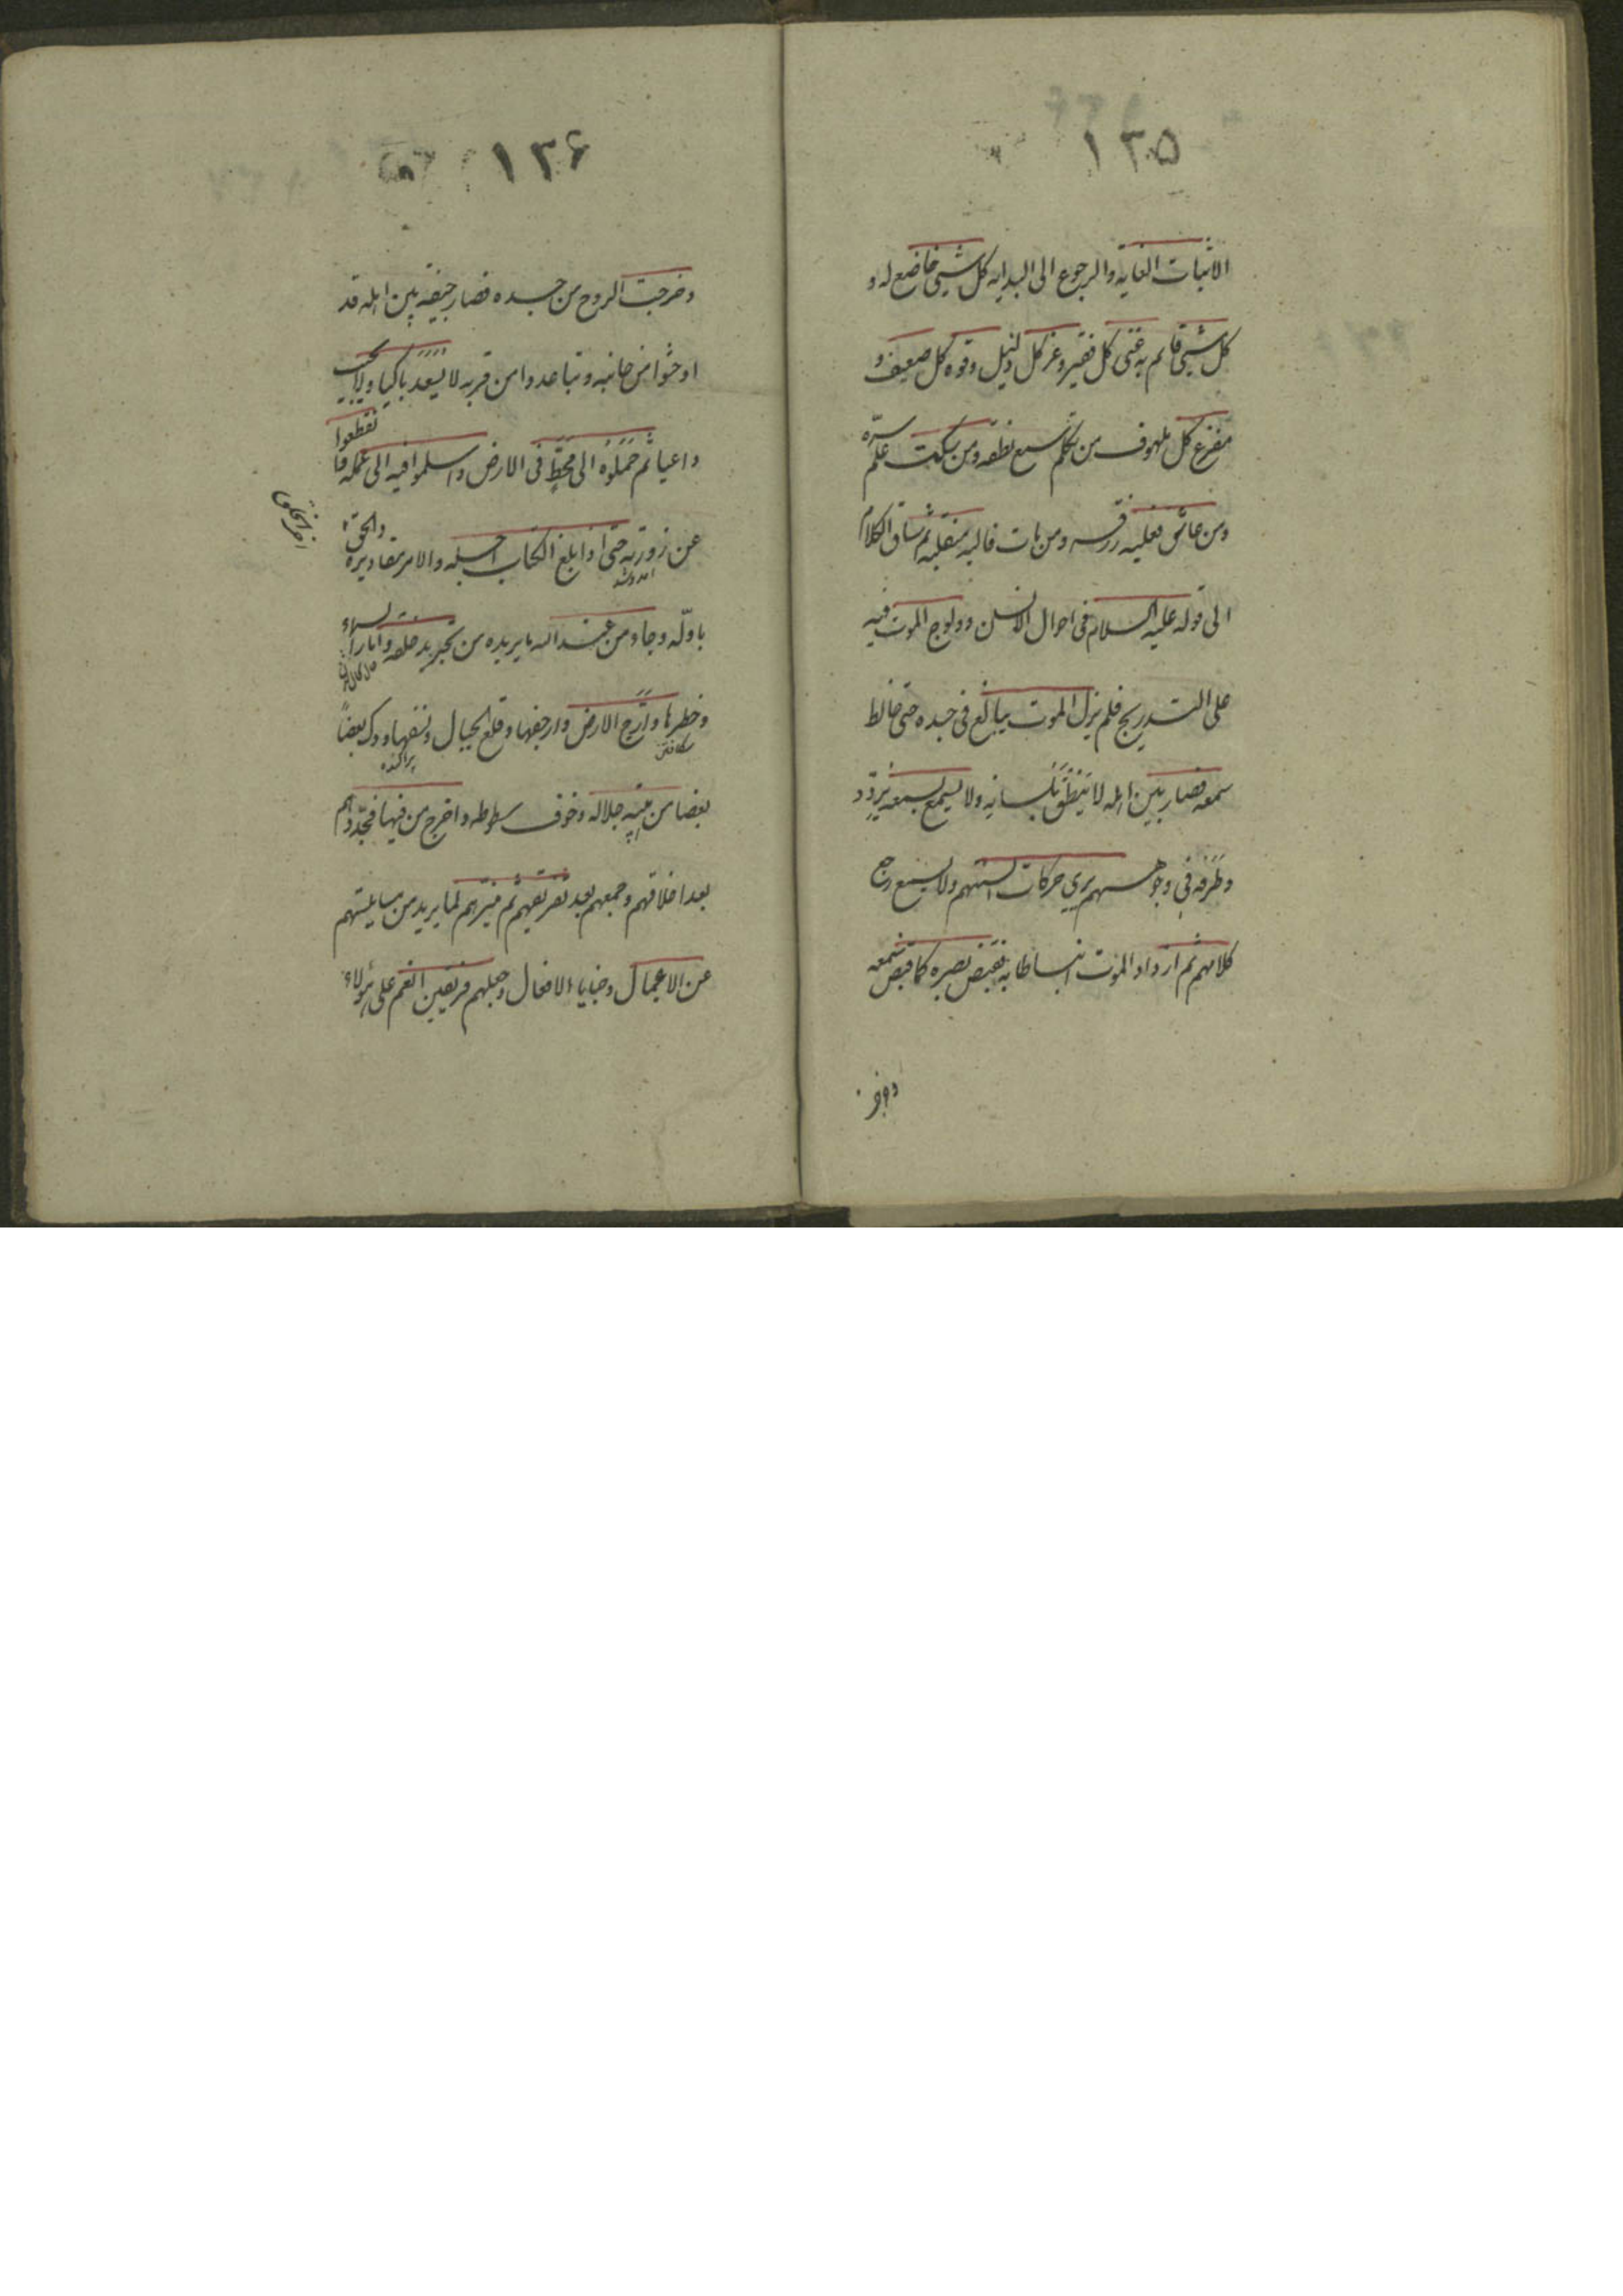 ١٣۵
الاثبات الغایه والرجوع الی البدایه کل شیئ خاضع له و
کل شیئ قائم به غنی کل فقیر وعز کل ذلیل وقوه کل ضعیف و
مفزع کل ملهوف من تکلم سمع نطقه ومن سکت علم سره
ومن عاش فعلیه رزقه ومن مات فالیه منقلبه ثم ساق الکلام
الی قوله علیه السلام فی احوال الانسان وولوج الموت فیه
علی التدریج فلم یزل الموت یبالغ فی جسده حتی خالط
سمعه فصار بین اهله لا ینطق بلسانه ولا یسمع بسمعه یردد
وطرفه فی وجوههم یری حرکات السنتهم ولا یسمع رجع
کلامهم ثم ازداد الموت انبساطا به فقبض بصره کما قبض سمعه
وخر
١٣۶
وخرجت الروح من جسده فصار جیفة بین اهله قد
اوحشوا من جانبه وتباعدوا من قربه لا یسعد باکیا ولا یجیب
داعیا ثم حملوه الی محط فی الارض واسلموا فیه الی عمله فا
نقطعوا
عن زورته حتی اذا بلغ الکتاب اجله والامر مقادیره والحق
اخر الخلق
باوله وجاء من عند الله ما یریده من تجدید خلقه واماد السماء
وفطرها وارج الارض وارجفها وقلع الجبال ونسفها ودک بعضا
شکافتن
پراکنده
بعضا من هیبه جلاله وخوف سطوطه واخرج من فیها فجددهم
بعد اخلاقهم وجمعهم بعد تفریقهم ثم میزهم لما یرید من مسایلتهم
عن الاعمال وخبایا الافعال وجعلهم فریقین انعم علی هؤلاء